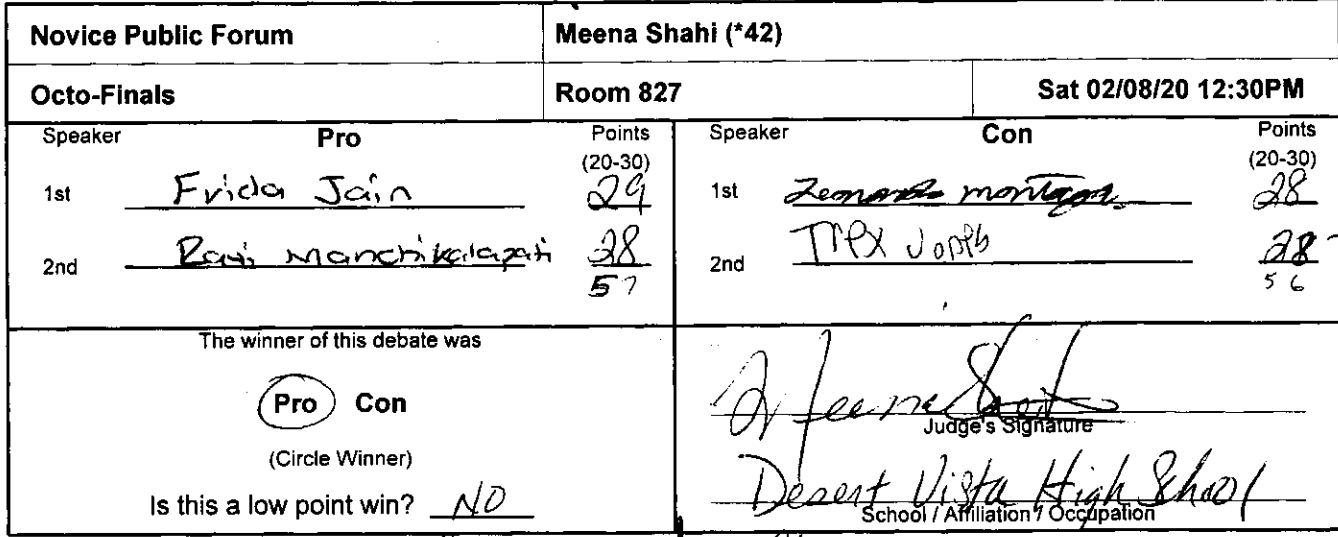 Novice Public Forum
Meena Shahi (*42)
Octo-Finals
Room 827
Sat 02/08/20 12:30PM
Speaker Pro Points
(20-30)
1st Frida Jain 29
2nd Ravi Manchikalapati 28
57
Speaker Con Points
(20-30)
1st 28
2nd 28
56
The winner of this debate was
Pro Con
(Circle Winner)
Is this a low point win? NO
Meena
Judge's Signature
Desert Vista High School
School / Affiliation / Occupation